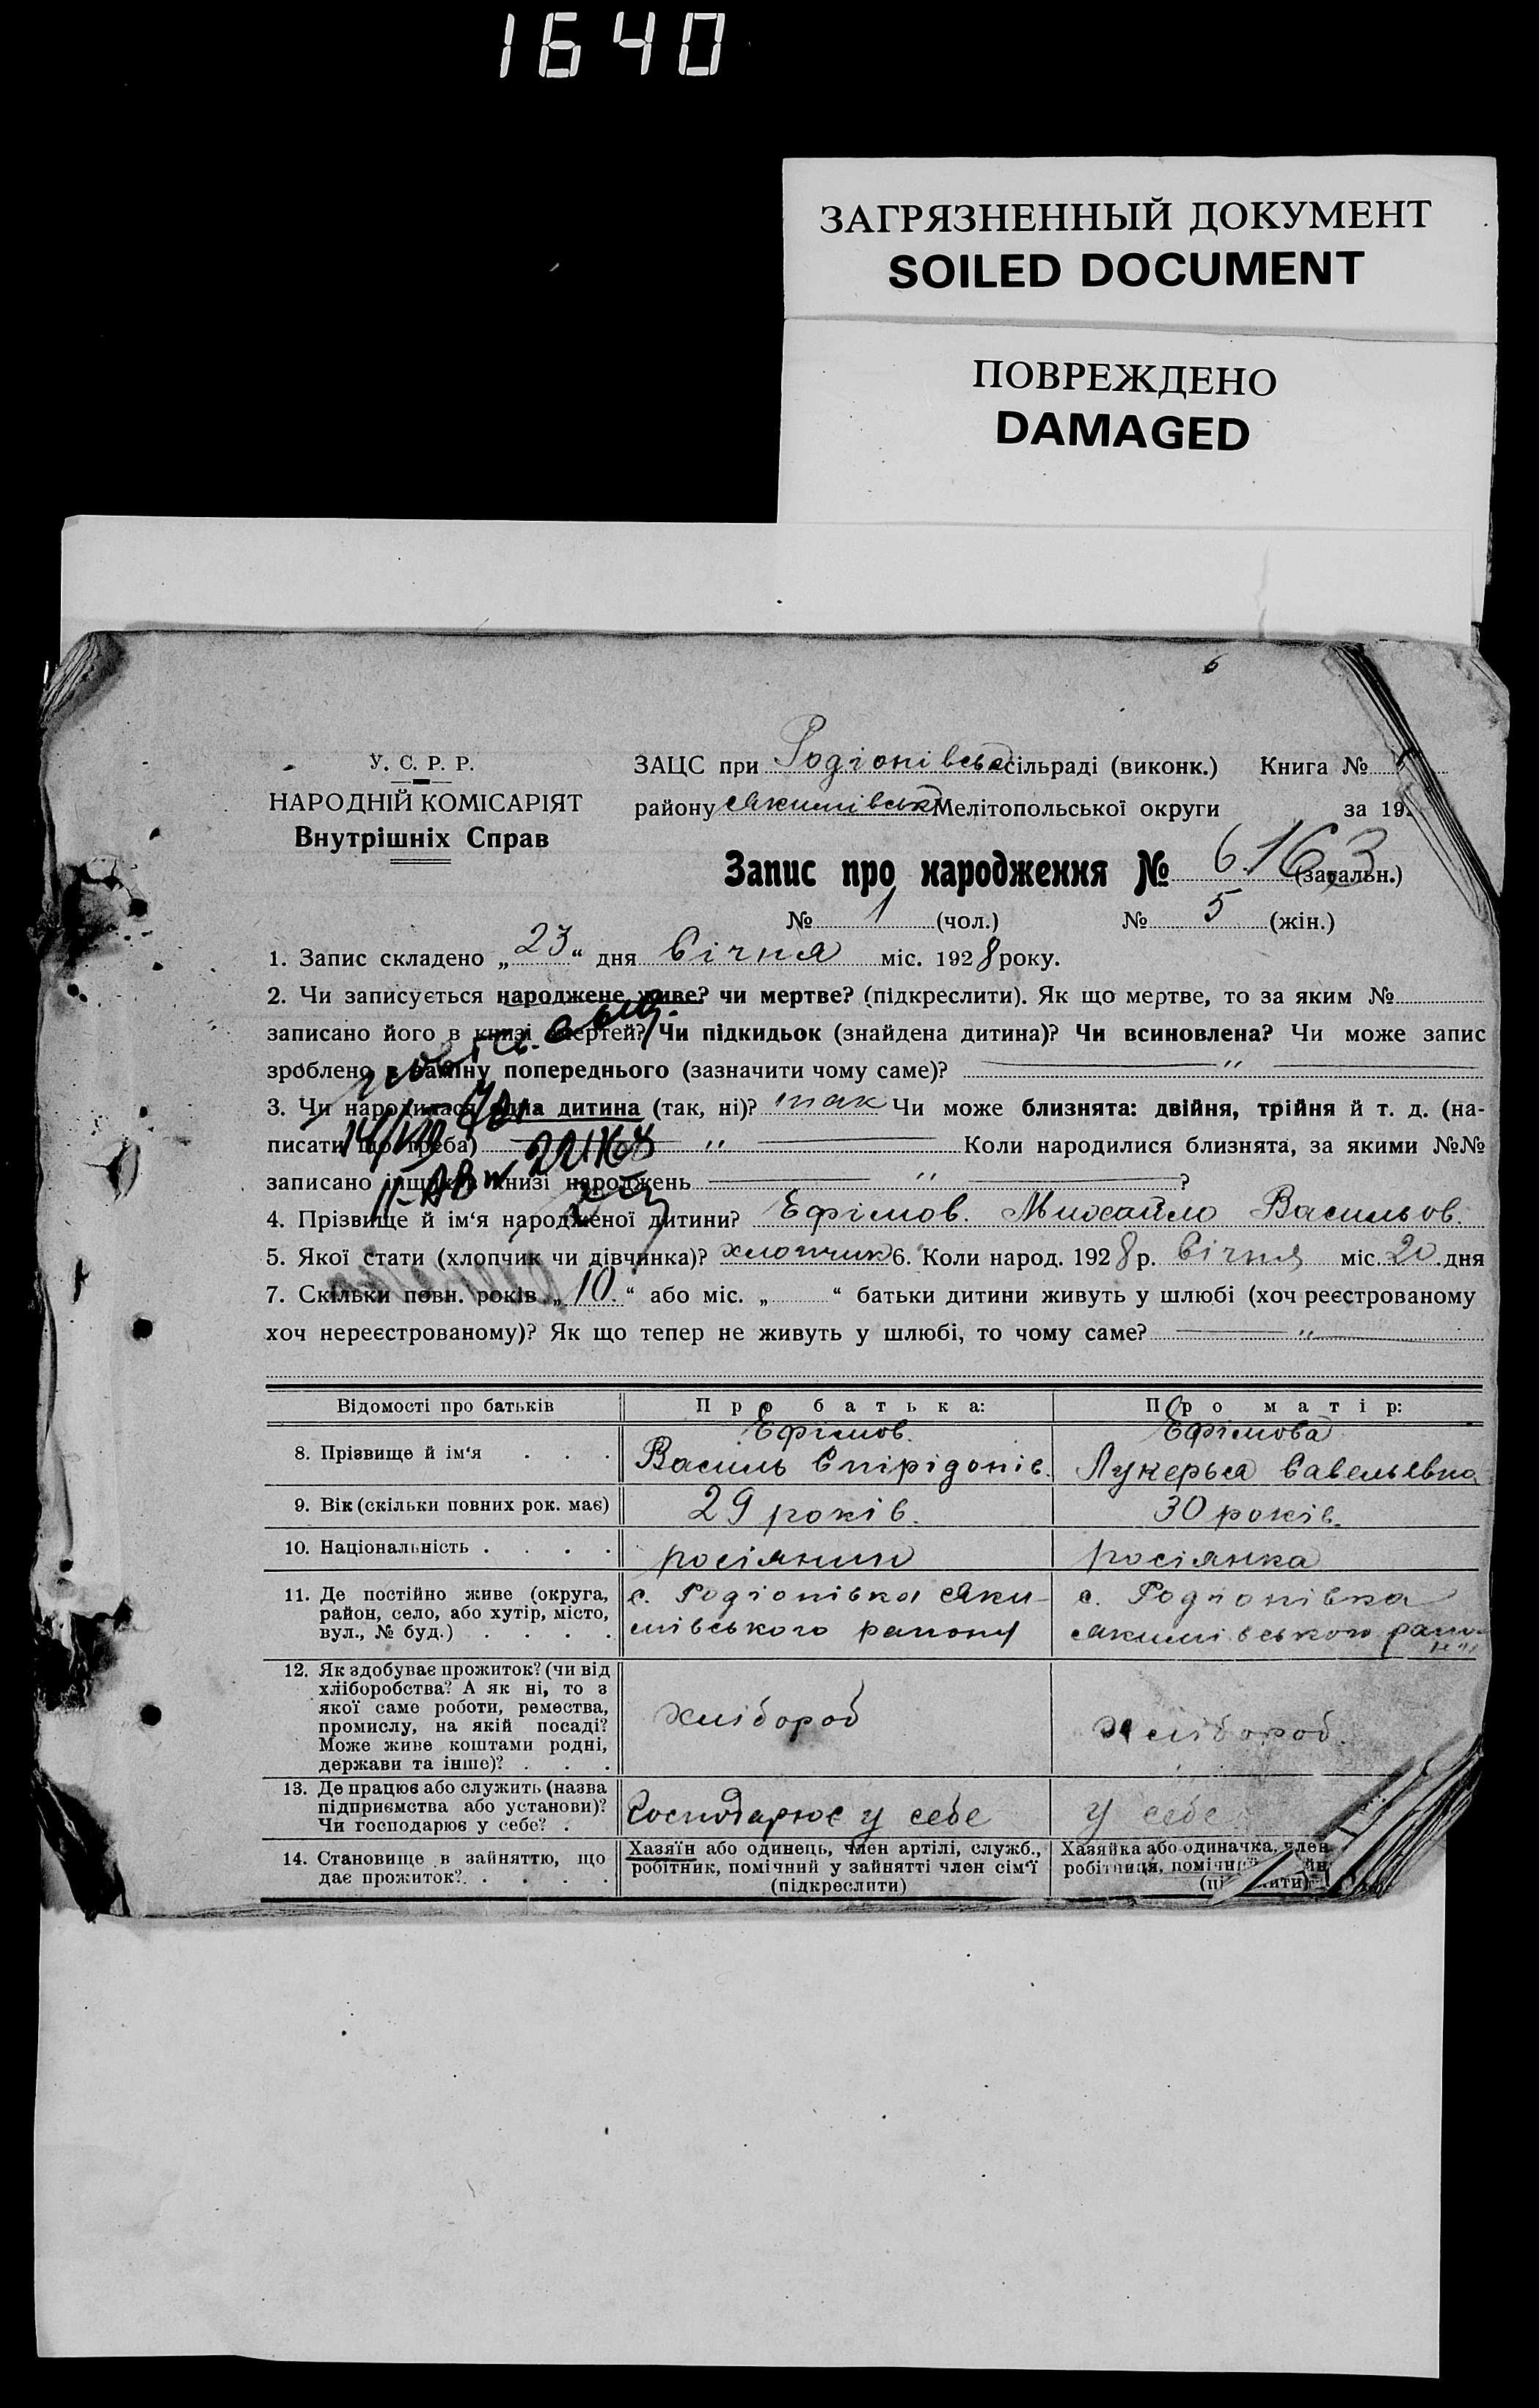 1640
ЗАГРЯЗНЕННЫЙ ДОКУМЕНТ
SOILED DOCUMENT
ПОВРЕЖДЕНО
DAMAGED
6
У. С. Р. Р.
НАРОДНІЙ КОМІСАРІЯТ
Внутрішніх Справ
ЗАЦС при Родіонівськ сільраді (виконк.) Книга №
району Якимівськ Мелітопольської округи за 19
Запис про народження № 6 163 (загальн.)
№ 1 (чол.) № 5 (жін.)
1. Запис складено „ 23 “ дня Січня міс. 1928 року.
2. Чи записується народжене живе? чи мертве? (підкреслити). Як що мертве, то за яким №
записано його в книзі смертей? Чи підкидьок (знайдена дитина)? Чи всиновлена? Чи може запис
зроблено в заміну попереднього (зазначити чому саме)? — " —
3. Чи народилася одна дитина (так, ні)? так Чи може близнята: двійня, трійня й т. д. (на-
писати що треба) — " — Коли народилися близнята, за якими №№
записано інших в книзі народжень — " — ?
4. Прізвище й ім‘я народженої дитини? Ефімов. Михайло Васильов.
5. Якої стати (хлопчик чи дівчинка)? хлопчик 6. Коли народ. 1928 р. Січня міс. 20 дня
7. Скільки повн. років „ 10 “ або міс. „ “ батьки дитини живуть у шлюбі (хоч реєстрованому
хоч нереєстрованому)? Як що тепер не живуть у шлюбі, то чому саме? — " —
Відомості про батьків Про батька: Про матір:
8. Прізвище й ім‘я . . . Ефімов. Василь Спірідонів. Ефімова Лукерья Савельевна
9. Вік (скільки повних рок. має) 29 років. 30 років.
10. Національність . . . . росіянин росіянка
11. Де постійно живе (округа, район, село, або хутір, місто, вул., № буд.) . . . . с. Родіонівка Яки-мівського району с. Родіонівка Якимівського району
12. Як здобуває прожиток? (чи від хліборобства? А як ні, то з якої саме роботи, ремества, промислу, на якій посаді? Може живе коштами родні, держави та інше)? . . . хлібороб хлібороб.
13. Де працює або служить (назва підприємства або установи)? Чи господарює у себе? . Господарює у себе у себе
14. Становище в зайняттю, що дає прожиток? . . . . Хазяїн або одинець, член артілі, служб., робітник, помічний у зайнятті член сім‘ї (підкреслити) Хазяйка або одиначка, член робітниця,